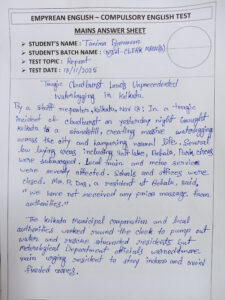 EMPYREAN ENGLISH – COMPULSORY ENGLISH TEST
MAINS ANSWER SHEET
➤ STUDENT'S NAME :
➤ STUDENT'S BATCH NAME : (CLERK MAINS)
➤ TEST TOPIC : Report
➤ TEST DATE : 18/11/2025
Tragic Cloudburst Leads Unprecedented
Waterlogging in Kolkata.
By a staff reporter, Kolkata, Nov 18: In a tragic
incident of cloudburst on yesterday night brought
Kolkata to a standstill, creating massive waterlogging
across the city and hampering normal life. Several
low lying areas, including Salt lake, Behala, streets
were submerged. Local train and metro services
were severly affected. Schools and offices were
closed. Mr. P. Das, a resident of Behala, said,
"we have not received any prior message from
authorities."
The Kolkata Municipal corporation and local
authorities worked round the clock to pump out
water and rescue stranded residents but
Meteorological Department officials warned more
rain urging resident to stay indoors and avoid
flooded areas.